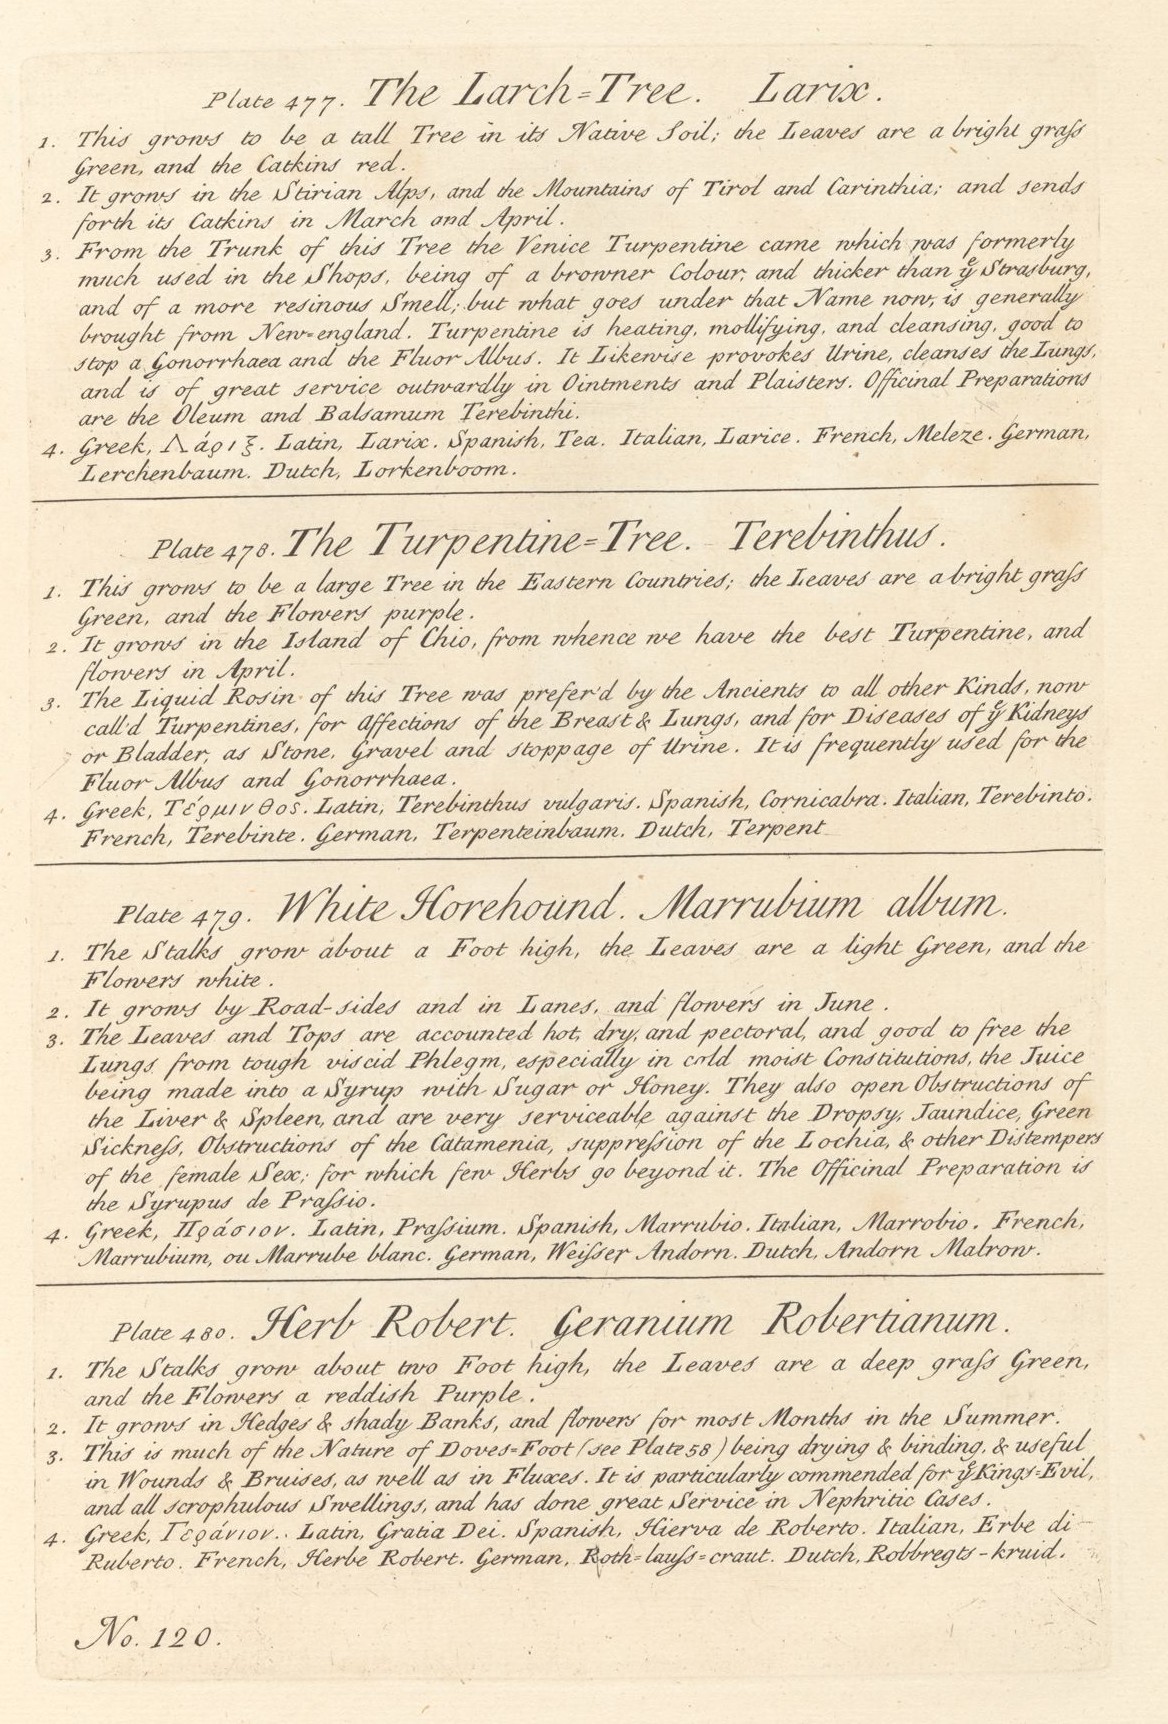 Plate 477. The Larch=Tree. Larix.
1. This grows to be a tall Tree in its Native Soil; the Leaves are a bright graſs
Green, and the Catkins red.
2. It grows in the Stirian Alps, and the Mountains of Tirol and Carinthia; and sends
forth its Catkins in March and April.
3. From the Trunk of this Tree the Venice Turpentine came which was formerly
much used in the Shops, being of a browner Colour, and thicker than yͤ Strasburg,
and of a more resinous Smell; but what goes under that Name now, is generally
brought from New=england. Turpentine is heating, mollifying, and cleansing, good to
stop a Gonorrhaea and the Fluor Albus. It Likewise provokes Urine, cleanses the Lungs,
and is of great service outwardly in Ointments and Plaisters. Officinal Preparations
are the Oleum and Balsamum Terebinthi.
4. Greek, Λάριξ. Latin, Larix. Spanish, Tea. Italian, Larice. French, Meleze. German,
Lerchenbaum. Dutch, Lorkenboom.
Plate 478. The Turpentine=Tree. Terebinthus.
1. This grows to be a large Tree in the Eastern Countries; the Leaves are a bright graſs
Green, and the Flowers purple.
2. It grows in the Island of Chio, from whence we have the best Turpentine, and
flowers in April.
3. The Liquid Rosin of this Tree was prefer'd by the Ancients to all other Kinds, now
call'd Turpentines, for Affections of the Breast & Lungs, and for Diseases of yͤ Kidneys
or Bladder, as Stone, Gravel and stoppage of Urine. It is frequently used for the
Fluor Albus and Gonorrhaea.
4. Greek, Τέρμινθος. Latin, Terebinthus vulgaris. Spanish, Cornicabra. Italian, Terebinto.
French, Terebinte. German, Terpenteinbaum. Dutch, Terpent
Plate 479. White Horehound. Marrubium album.
1. The Stalks grow about a Foot high, the Leaves are a light Green, and the
Flowers white.
2. It grows by Road-sides and in Lanes, and flowers in June.
3. The Leaves and Tops are accounted hot, dry, and pectoral, and good to free the
Lungs from tough viscid Phlegm, especially in cold moist Constitutions, the Juice
being made into a Syrup with Sugar or Honey. They also open Obstructions of
the Liver & Spleen, and are very serviceable against the Dropsy, Jaundice, Green
Sickneſs, Obstructions of the Catamenia, suppreſsion of the Lochia, & other Distempers
of the female Sex; for which few Herbs go beyond it. The Officinal Preparation is
the Syrupus de Praſsio.
4. Greek, Πράσιον. Latin, Praſsium. Spanish, Marrubio. Italian, Marrobio. French,
Marrubium, ou Marrube blanc. German, Weiſser Andorn. Dutch, Andorn Malrow.
Plate 480. Herb Robert. Geranium Robertianum.
1. The Stalks grow about two Foot high, the Leaves are a deep graſs Green,
and the Flowers a reddish Purple.
2. It grows in Hedges & shady Banks, and flowers for most Months in the Summer.
3. This is much of the Nature of Doves=Foot (see Plate 58) being drying & binding, & useful
in Wounds & Bruises, as well as in Fluxes. It is particularly commended for yͤ Kings=Evil,
and all scrophulous Swellings, and has done great Service in Nephritic Cases.
4. Greek, Γεράνιον. Latin, Gratia Dei. Spanish, Hierva de Roberto. Italian, Erbe di
Ruberto. French, Herbe Robert. German, Roth=lauſs=craut. Dutch, Robbregts-kruid.
No. 120.